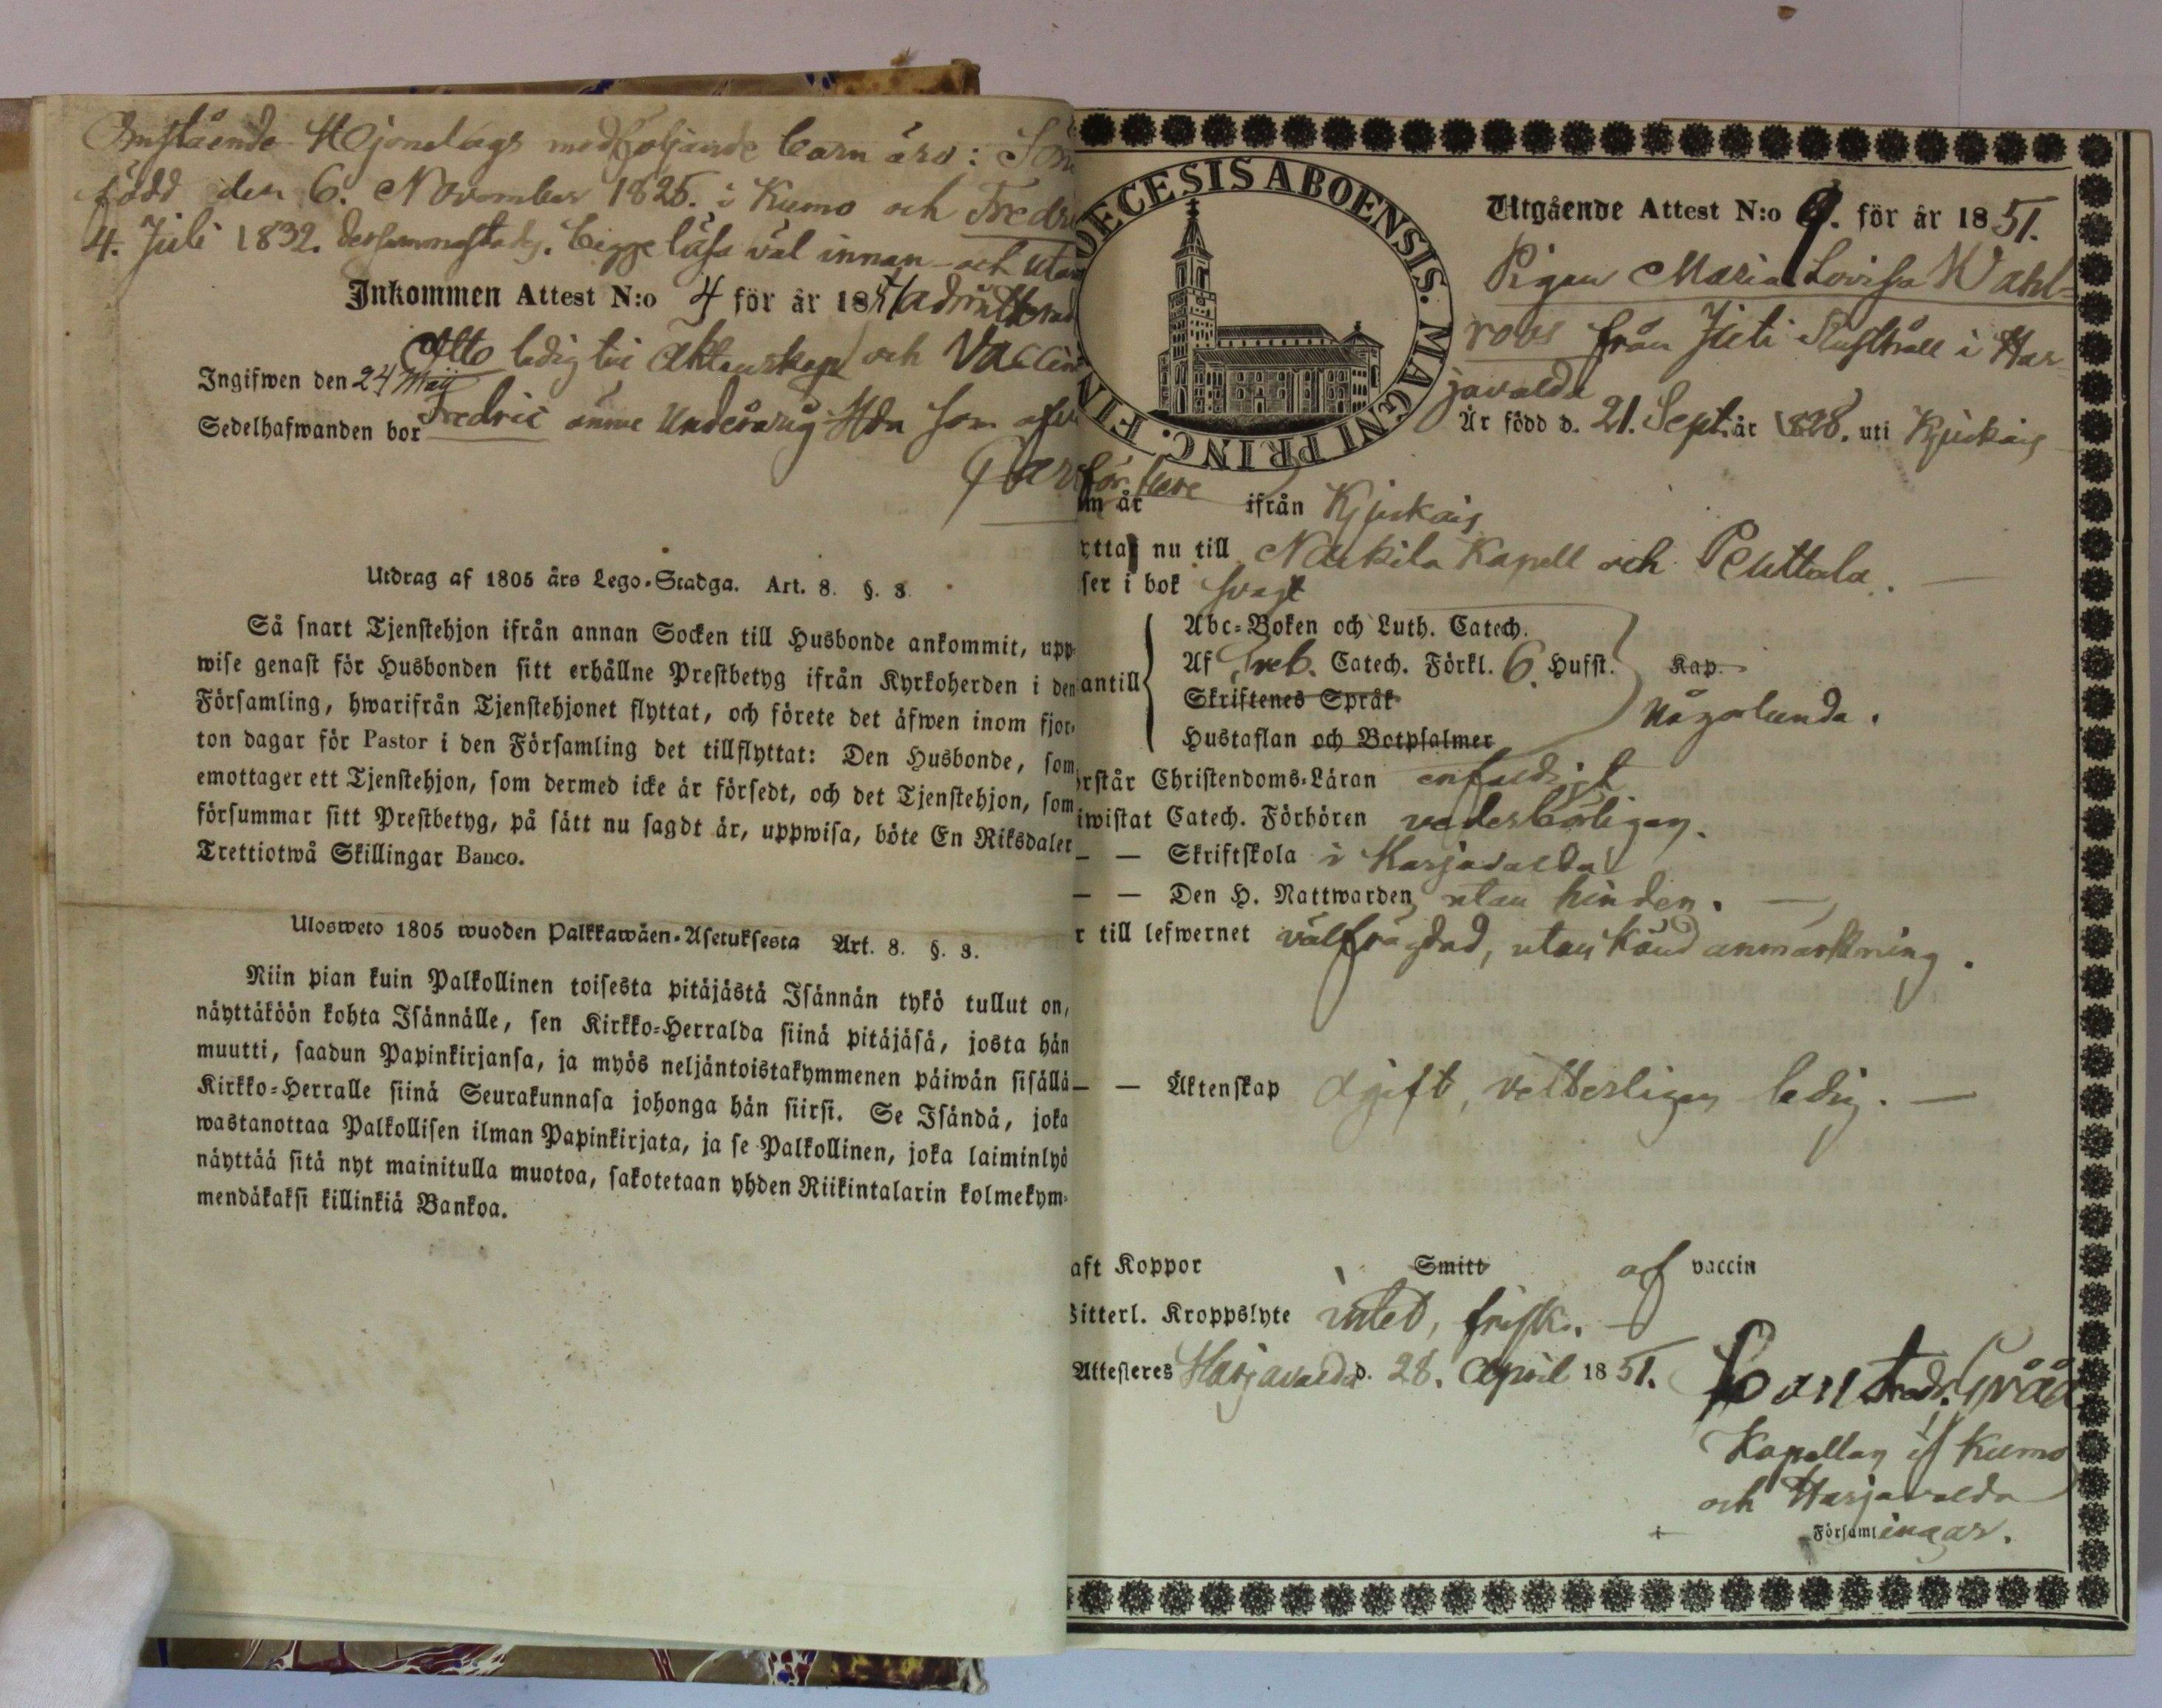 Omstående Hjonelags medföljande barn äro: S
född den 6. November 1825. i Kumo och Fredr
4. Juli 1832. dersammastädes. begge läsa väl innan- och utan
Inkommen Attest N:o 4 för år 1851 admitterad
Otto ledig till äktenskap och Vaccin
Ingifwen den 24 Maij
Sedelhafwanden bor Fredric ännu Underårig
Utdrag af 1805 års Lego-Stadga. Art. 8. §. 3.
Så snart Tjenstehjon ifrån annan Socken till Husbonde ankommit, upp-
wise genast för Husbonden sitt erhållne Prestbetyg ifrån Kyrkoherden i den
Församling, hwarifrån Tjenstehjonet flyttat, och förete det äfwen inom fjor-
ton dagar för Pastor i den Församling det tillflyttat: Den Husbonde, som
emottager ett Tjenstehjon, som dermed icke är försedt, och det Tjenstehjon, som
försummar sitt Prestbetyg, på sätt nu sagdt är, uppwisa, böte En Riksdaler
Trettiotwå Skillingar Banco.
Ulosweto 1805 wuoden Palkkawäen-Asetuksesta Art. 8. §. 3.
Niin pian kuin Palkollinen toisesta pitäjästä Isännän tykö tullut on,
näyttäköön kohta Isännälle, sen Kirkko-Herralda siinä pitäjäsä, josta hän
muutti, saadun Papinkirjansa, ja myös neljäntoistakymmenen päiwän sisällä
Kirkko-Herralle siinä Seurakunnasa johonga hän siirsi. Se Isändä, joka
wastanottaa Palkollisen ilman Papinkirjata, ja se Palkollinen, joka laiminlyö
näyttää sitä nyt mainitulla muotoa, sakotetaan yhden Riikintalarin kolmekym-
mendäkaksi killinkiä Bankoa.
OECESIS ABOENSIS. MAGNI PRINC. FIN
Utgående Attest N:o 9. för år 1851.
Pigan Maria Lovisa Wahl-
roos från Juti Rusthåll i Har-
javalda
Är född d. 21. Sept. år 1828. uti Kjukais
för flere
m år ifrån Kjukais
yttar nu till Nackila Kapell och Penttala.
ser i bok svagt
antill
Abc-Boken och Luth. Catech.
Af Sveb. Catech. Förkl. 6. Hufst. Kap.
Skriftenes Språk
Någorlunda.
Hustaflan och Botpsalmer
rstår Christendoms-Läran enfaldigt
iwistat Catech. Förhören vederbörligen.
— — Skriftskola i Harjavalda
— — Den H. Nattwarden utan hinder. —
r till lefwernet välfrägdad, utan känd anmärkning.
— — Äktenskap Ogift, veterligen ledig. —
aft Koppor Smitt af vaccin
Witterl. Kroppslyte intet, frisk. —
Attesteres Harjavalda d. 28. April 1851.
Const. Fredr. Gråå
Kapellan i Kumo
och Harjavalda
Församlingar.